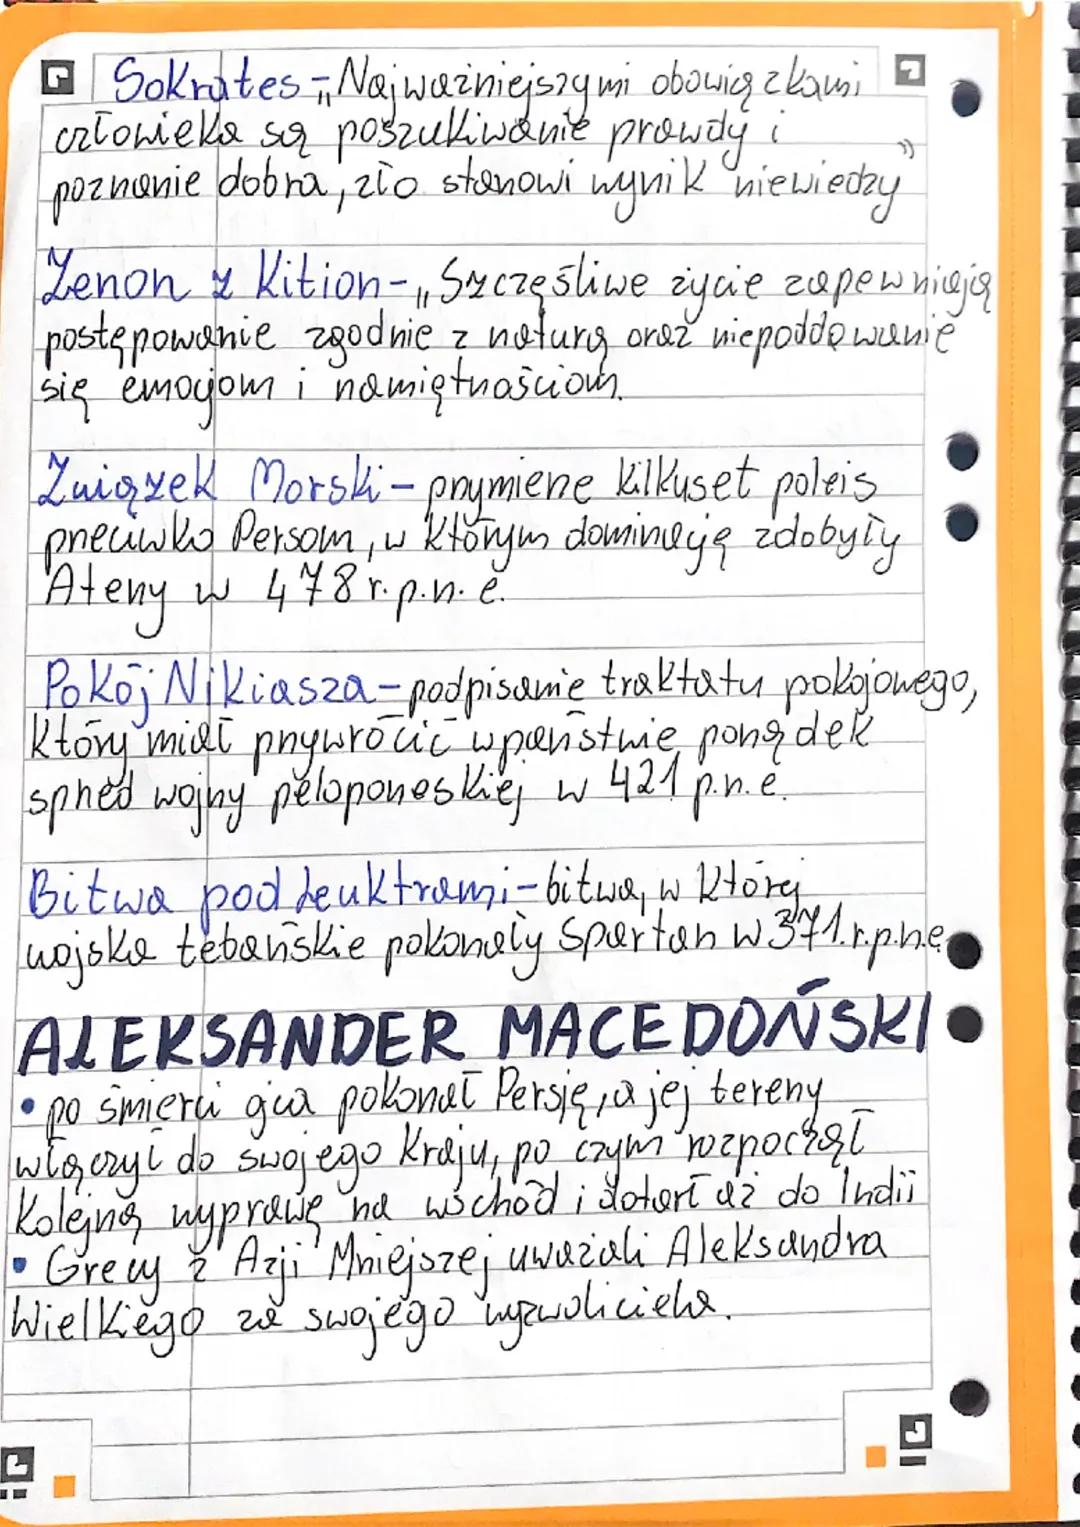 Sokrates - „Najważniejszymi obowiązkami
człowieka są poszukiwanie prawdy i
poznanie dobra, zło stanowi wynik niewiedzy”
Zenon z Kition - „Szczęśliwe życie zapewniają
postępowanie zgodnie z naturą oraz niepoddawanie
się emocjom i namiętnościom.
Związek Morski - przymierze kilkuset poleis
przeciwko Persom, w którym dominację zdobyły
Ateny w 478 r. p.n.e.
Pokój Nikiasza - podpisanie traktatu pokojowego,
który miał przywrócić w państwie porządek
sprzed wojny peloponeskiej w 421 p.n.e.
Bitwa pod Leuktrami - bitwa, w której
wojska tebańskie pokonały Spartan w 371.r.p.n.e.
ALEKSANDER MACEDOŃSKI
• po śmierci ojca pokonał Persję, a jej tereny
włączył do swojego kraju, po czym rozpoczął
kolejną wyprawę na wschód i dotarł aż do Indii
• Grecy z Azji Mniejszej uważali Aleksandra
Wielkiego za swojego wyzwoliciela.